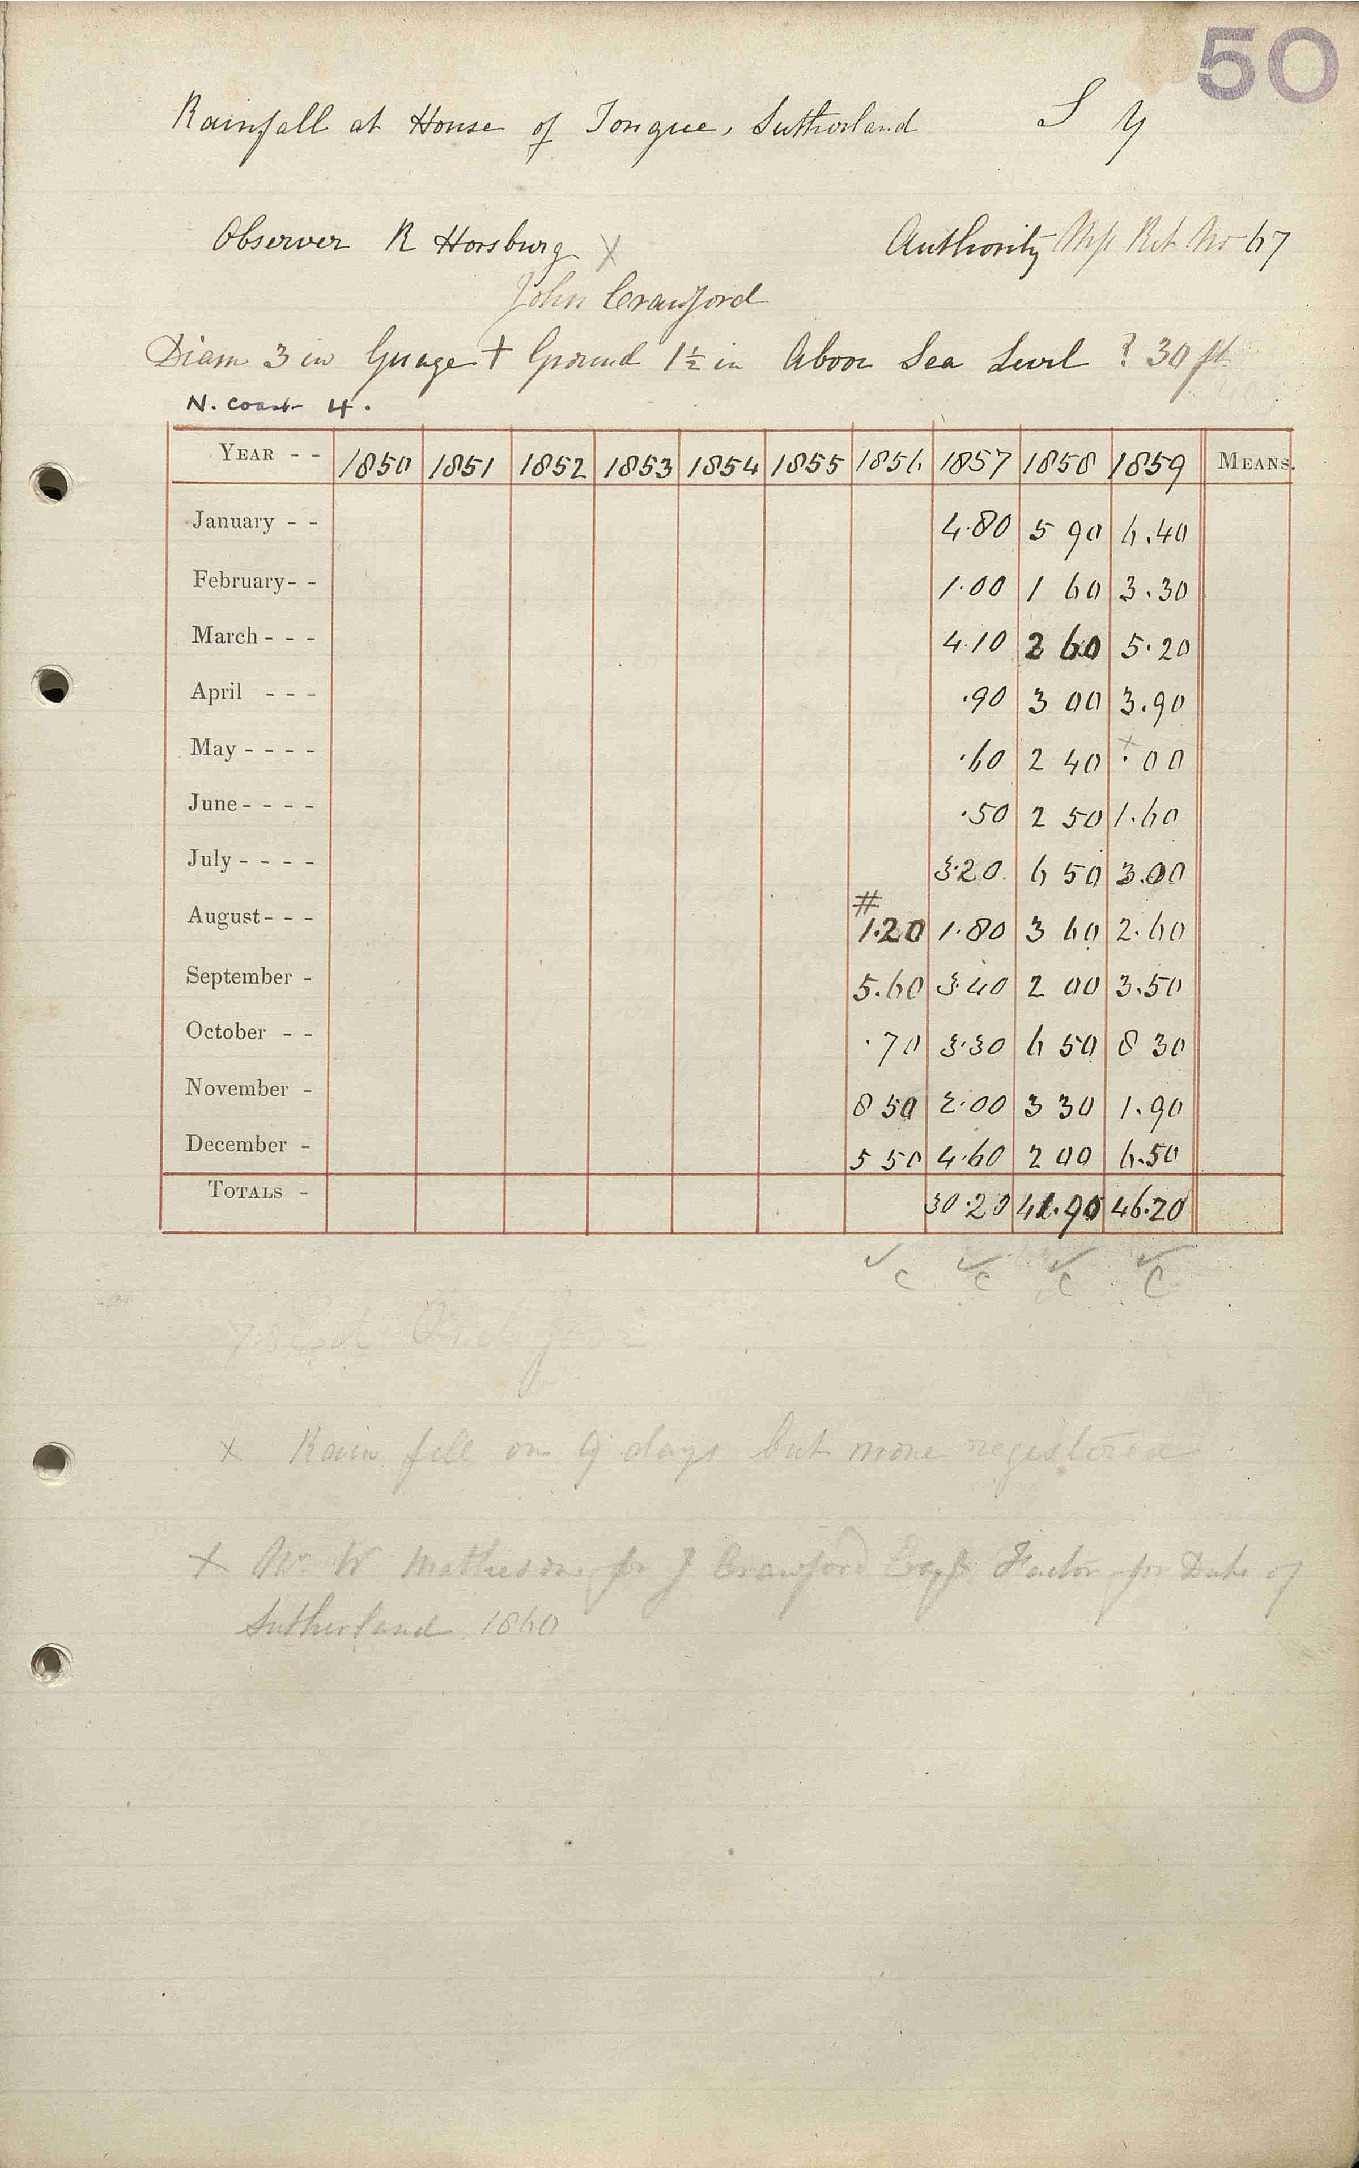 50
Rainfall at House of Tongue, Sutherland S y
Observer R Horsburg x Authority Ret No 67
John Crawford
Diam 3 in Guage + Ground 1½ in Above Sea Level ? 30 ft
N. Coast 4.
YEAR - - 1850 1851 1852 1853 1854 1855 1856 1857 1858 1859 MEANS.
January - - 4.80 5 90 6.40
February - - 1.00 1 60 3.30
March - - - 4.10 2 60 5.20
April - - - .90 3 00 3.90
May - - - - .60 2 40 x .00
June - - - - .50 2 50 1.60
July - - - - 3.20 6 50 3.00
August - - - # 1.20 1.80 3 60 2.60
September - 5.60 3.40 2 00 3.50
October - - .70 3.30 6 50 8 30
November - 8 50 2.00 3 30 1.90
December - 5 50 4.60 2 00 6.50
TOTALS - 30.20 41.90 46.20
✓c ✓c ✓c ✓c
x Rain fell on 9 days but none registered
x Mr W Matheson for J Crawford Esq Factor for Duke of
Sutherland 1860